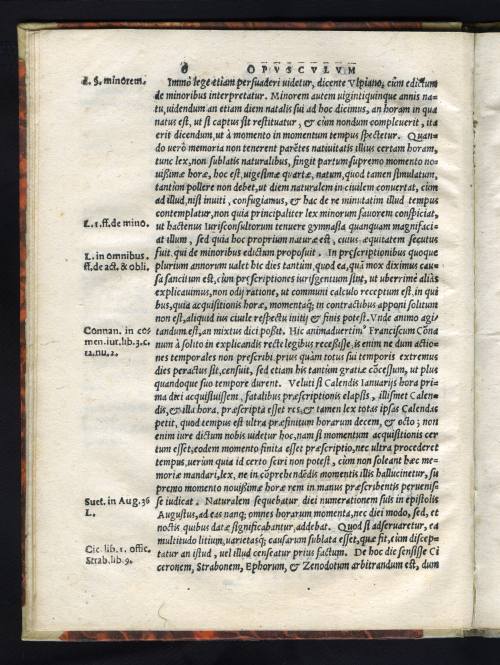 6 OPVSCVLVM
L. §. minorem.
Immò lege etiam persuaderi uidetur, dicente Vlpiano, cùm edictum
de minoribus interpretatur. Minorem autem uigintiquinque annis na-
tu, uidendum an etiam diem natalis sui ad hoc dicimus, an horam in qua
natus est, ut si captus sit restituatur, & cùm nondum compleuerit, ita
erit dicendum, ut à momento in momentum tempus spectetur. Quan-
do uerò memoria non tenerent parẽtes natiuitatis illius certam horam,
tunc lex, non sublatis naturalibus, fingit partum supremo momento no-
uissimæ horæ, hoc est, uigesimæ quartæ, natum, quod tamen simulatum,
tantùm pollere non debet, ut diem naturalem in ciuilem conuertat, cùm
ad illud, nisi inuiti, confugiamus, & hac de re minutatim illud tempus
contemplatur, non quia principaliter lex minorum fauorem conspiciat,
L. 1. ff. de mino.
ut hactenus Iurisconsultorum tenuere gymnasia quanquam magnifaci-
at illum, sed quia hoc proprium naturæ est, cuius æquitatem secutus
fuit, qui de minoribus edictum proposuit. In præscriptionibus quoque
L. in omnibus.
ff. de act. & obli.
plurium annorum ualet hic dies tantùm, quod ea, qui mox diximus cau-
sa sancitum est, cùm præscriptiones iurisgentium sint, ut uberrimè aliàs
explicauimus, non odij ratione, ut communi calculo receptum est, in qui
bus, quia acquisitionis horæ, momentaq; in contractibus apponi solitum
non est, aliquid ius ciuile respectu initij & finis potest. Vnde animo agi-
Connan. in co�
men. iur. lib. 3. c.
12. nu. 2.
tandum est, an mixtus dici poßit. Hic animaduertim⁹ Franciscum Cõna
num à solito in explicandis rectè legibus receßisse, is enim ne dum actio-
nes temporales non præscribi priusquàm totus sui temporis extremus
dies peractus sit, censuit, sed etiam his tantùm gratiæ cõcessum, ut plus
quandoque suo tempore durent. Veluti si Calendis Ianuarijs hora pri-
ma diei acquisiuissem, fatalibus præscriptionis elapsis, illismet Calen-
dis, & illa hora, præscripta esset res: & tamen lex totas ipsas Calendas
petit, quod tempus est ultra præfinitum horarum decem, & octo; non
enim iure dictum nobis uidetur hoc, nam si momentum acquisitionis cer
tum esset, eodem momento finita esset præscriptio, nec ultra procederet
tempus, uerùm quia id certò sciri non potest, cùm non soleant hæc me-
moriæ mandari, lex, ne in cõprehendẽdis momentis illis hallucinetur, su
premo momento nouissimæ horæ rem in manus præscribentis peruenisse
Suet. in Aug. 36
L.
se iudicat. Naturalem sequebatur diei numerationem suis in epistolis
Augustus, ad eas nanq; omnes horarum momenta, nec diei modo, sed, et
noctis quibus datæ significabantur, addebat. Quod si adseruaretur, ea
multitudo litium, uarietasq; causarum sublata esset, quæ fit, cùm discep-
Cic. lib. 1. offic.
Strab. lib. 9.
tatur an istud, uel illud censeatur prius factum. De hoc die sensisse Ci
ceronem, Strabonem, Ephorum, & Zenodotum arbitrandum est, dum